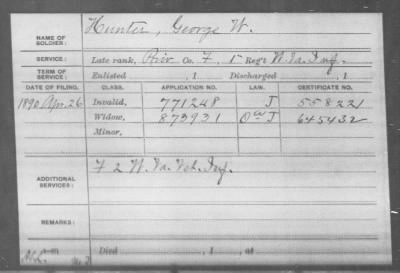 NAME OF SOLDIER: Hunter, George W.
SERVICE: Late rank, Priv Co. F, 1 Reg't W. Va. Inf.
TERM OF SERVICE: Enlisted , 1 Discharged , 1
DATE OF FILING. CLASS. APPLICATION NO. LAW. CERTIFICATE NO.
1890 Apr. 26 Invalid, 771248 J 558221
Widow, 873931 J 645432
Minor,
ADDITIONAL SERVICES: F 2 W. Va. Vet. Inf.
REMARKS:
Died , 1 , at